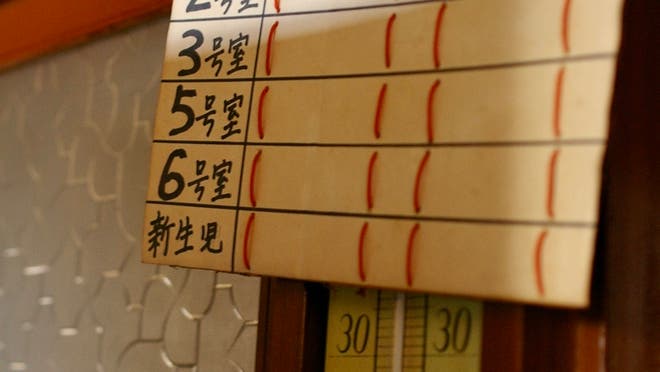 2号室
3号室
5号室
6号室
新生児
30 30